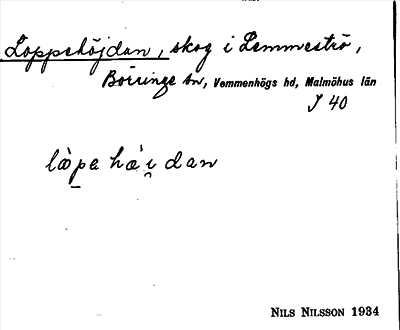 Loppehöjdan, skog i Lemmeströ,
Börringe sn, Vemmenhögs hd, Malmöhus län
J 40
lò̱pa hæ̀i̯dan
NILS NILSSON 1934